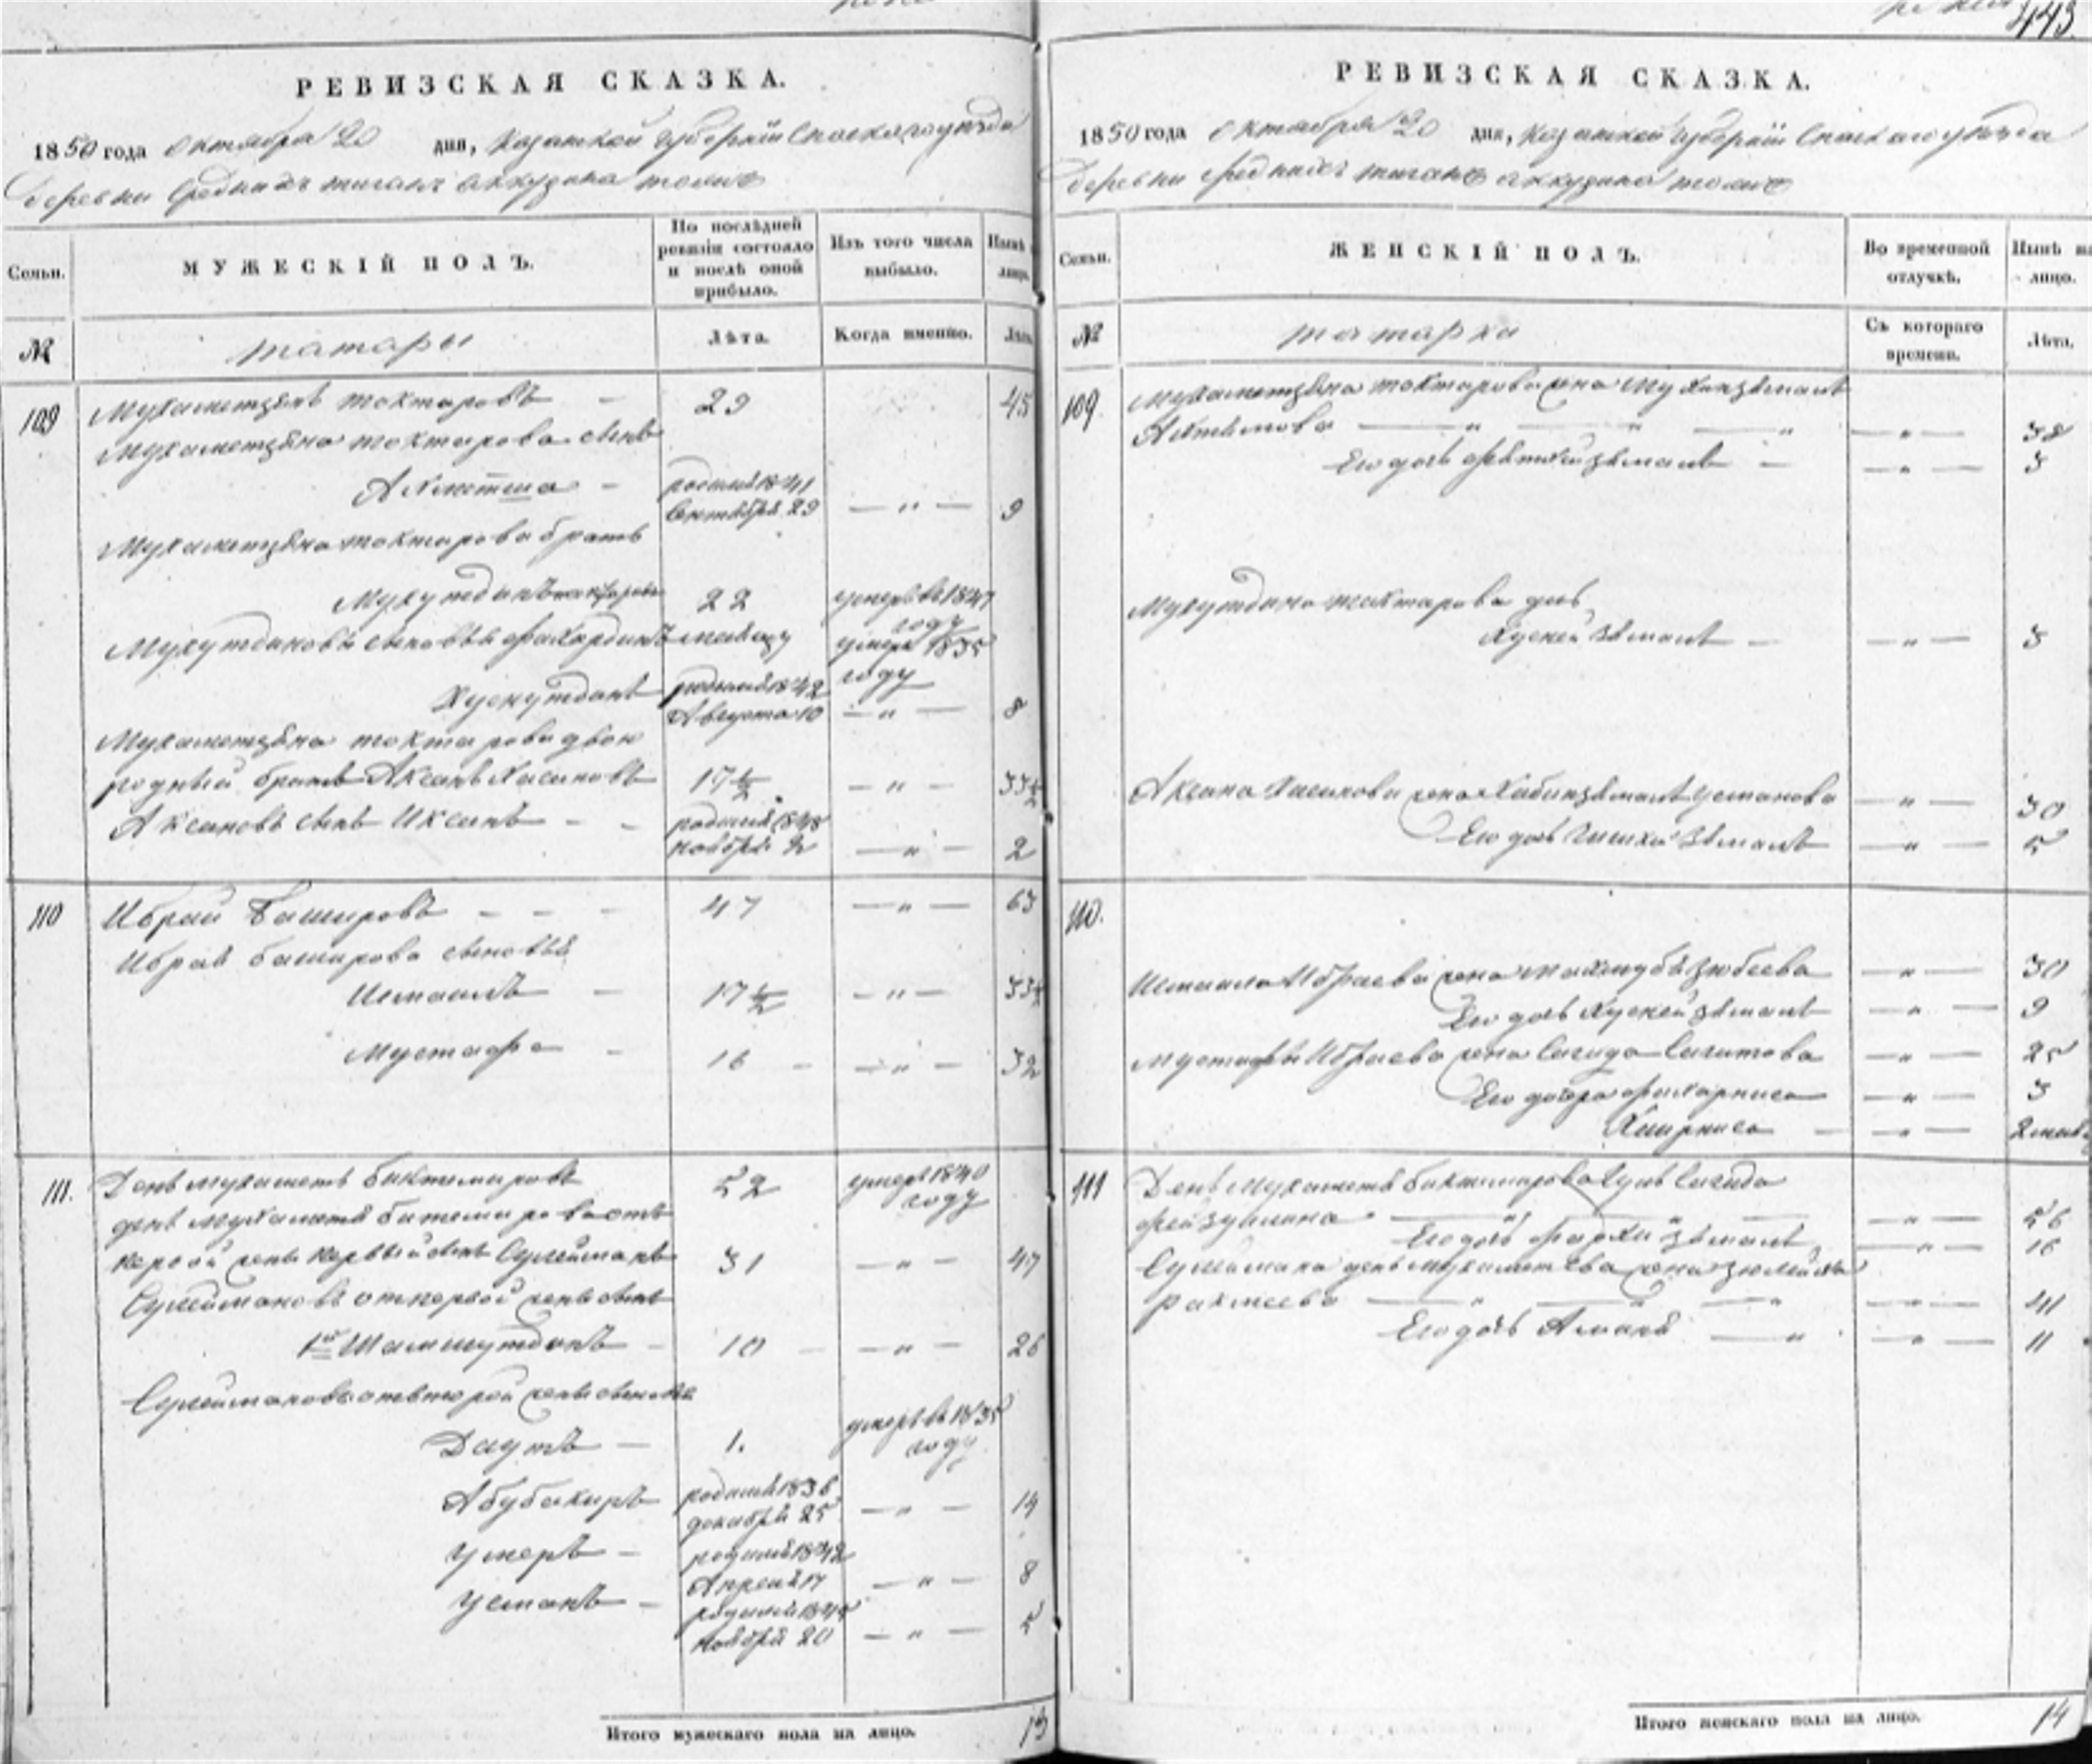 443.
РЕВИЗСКАЯ СКАЗКА.
1850 года Октября 20 дня, Казанской Губернiи Спаскаго уѣзда
деревни Среднихъ тиганъ аккузина тожъ
Семьи.
МУЖЕСКІЙ ПОЛЪ.
По послѣдней ревизіи состояло и послѣ оной прибыло.
Изъ того числа выбыло.
Нынѣ
лицо.
№
татары
Лѣта.
Когда именно.
Лѣта
109 Мухаметзянъ токтаровъ — 29 45
Мухаметзяна токтарова сынъ
Ахметша — родился 1841
Сентября 29 — „ — 9
Мухаметзяна токтарова братъ
Мухутдинъ токтаровъ 22 умеръ въ 1847
году
Мухутдиновы сыновья Фахардинъ умеръ 1835
году
Хуснутдинъ родился 1842
Августа 10 — „ — 8
Мухаметзяна токтарова двою
родный братъ Аксанъ Хасановъ 17½ — „ — 33½
Аксановъ сынъ Иксанъ — — родился 1848
ноября 2 — „ — 2
110 Ибрай Башировъ — — — 47 — „ — 63
Ибрая баширова сыновья
Исмаилъ — 17½ — „ — 33½
Мустафа — 16 — — „ — 32
111. Денъмухаметъ биктимировъ 52 умеръ 1840
году
денъмухаметя битемирова отъ
первой жены первый сынъ Сулейманъ 31 — „ — 47
Сулеймановъ от первой жены сынъ
1й Шамшутдинъ — 10 — — „ — 26
Сулеймановы отъ второй жены сыновья
Даутъ — 1. умеръ въ 1835
году
Абубакиръ родился 1836
декабря 25 — „ — 14
Умеръ — родился 1842
Апреля 17 — „ — 8
Усманъ — родился 1845
ноября 20 — „ — 5
Итого мужескаго пола на лицо. 13
РЕВИЗСКАЯ СКАЗКА.
1850 года Октября 20 дня, Казанской Губернiи Спаскаго уѣзда
деревни средних тиганъ аккузина тожъ
Семьи.
ЖЕНСКІЙ ПОЛЪ.
Во временной отлучкѣ.
Нынѣ на лицо.
№
татарки
Съ котораго времени.
Лѣта.
109 Мухаметзяна токтарова жена
— „ — „ — „ — „ — 38
Его дочь — — „ — 3
Мухутдина токтарова дочь
Хуснизямалъ — — „ — 3
Аксана Хасанова жена Хабибзямалъ Усманова — „ — 30
Его дочь — „ — 5
110.
Исмаила Ибраева жена — „ — 30
Его дочь Хуснизямалъ — „ — 9
Мустафы Ибраева жена Сагида Сагитова — „ — 25
Его дочери Фахарниса — „ — 3
Хаирниса — — „ — 2
111 Денъмухаметя биктимирова жена Сагида
фейзуллина — „ — „ — — „ — 56
Его дочь — „ — 16
Сулеймана денъмухаметева жена Зюлейха
рахмеева — „ — „ — „ — „ — 41
Его дочь — „ — „ — 11
Итого женскаго пола на лицо. 14